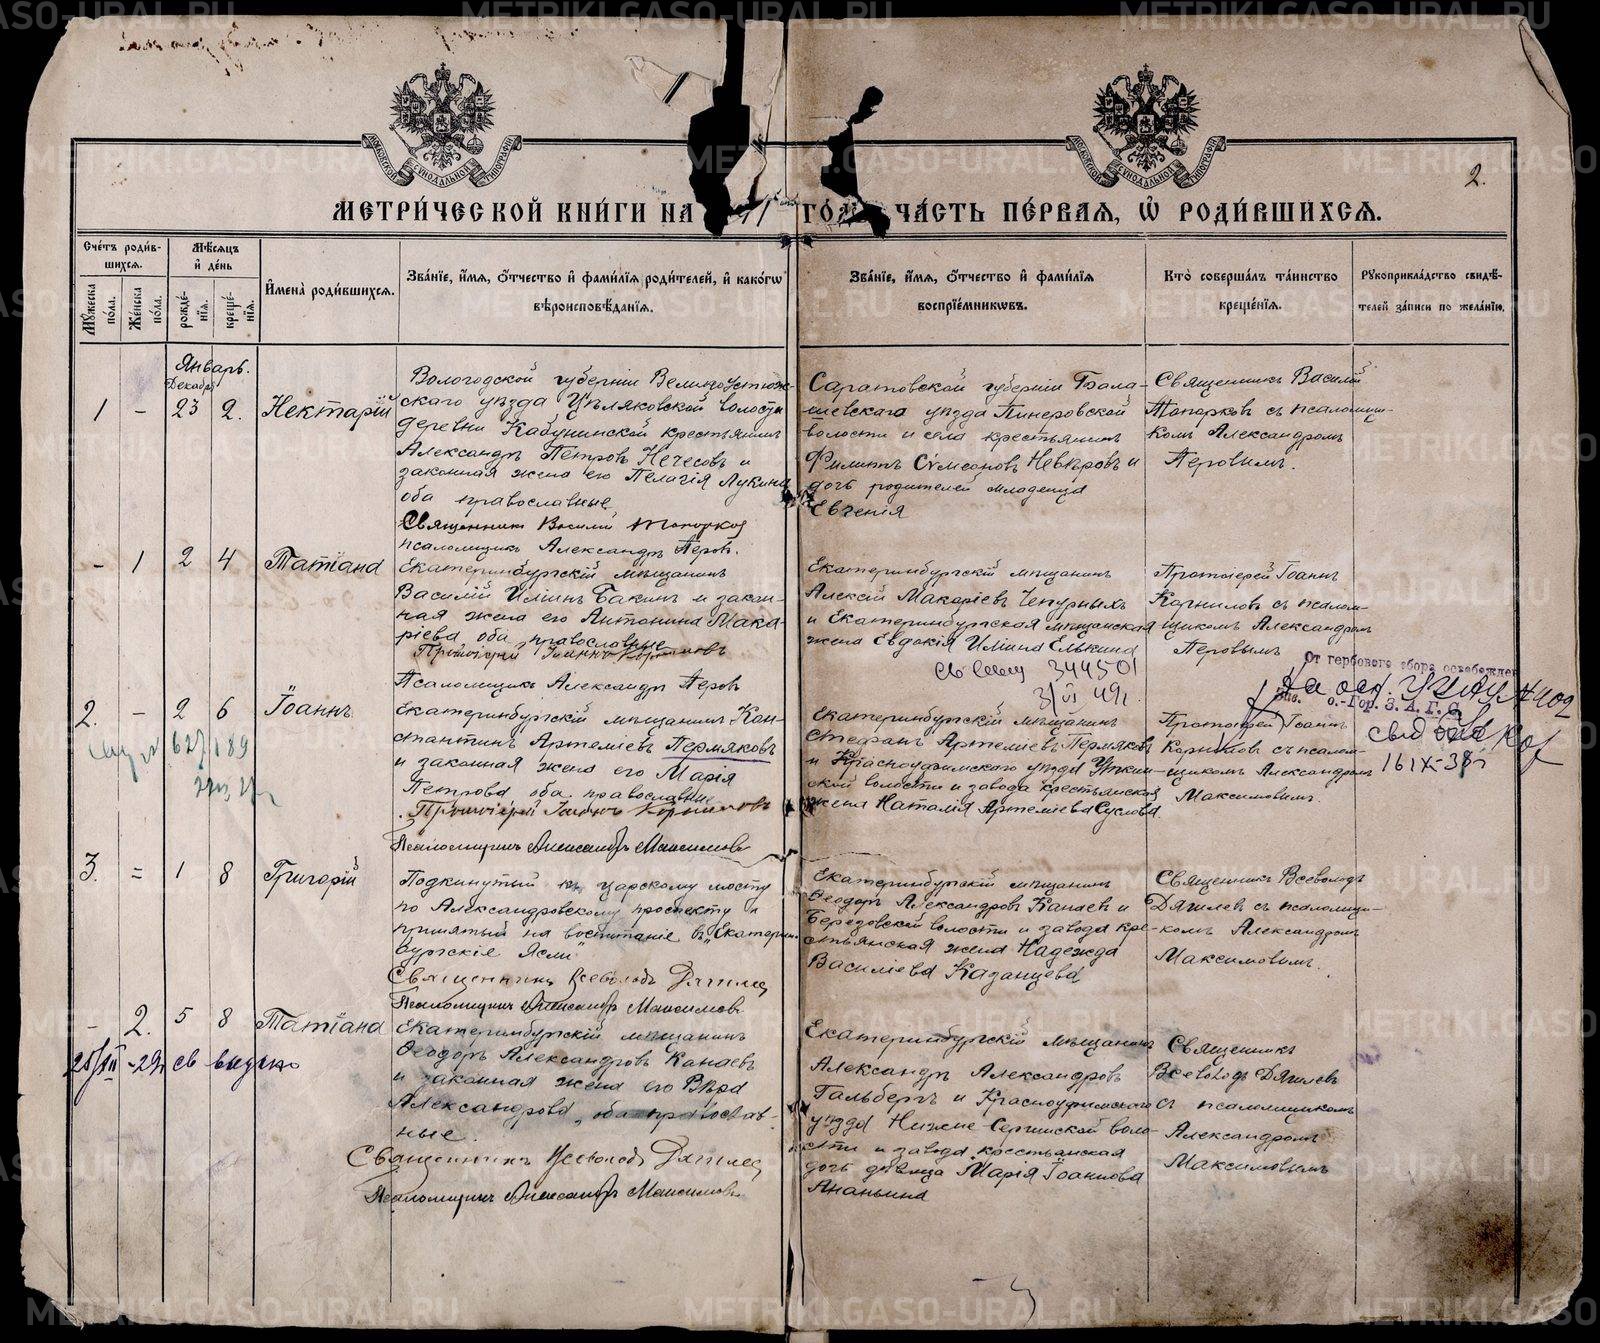 2.
МЕТРИ́ЧЕСКОЙ КНИ́ГИ НА ГО́ДЪ ЧА́СТЬ ПЕ́РВАѦ, Ѡ҆ РОДИ́ВШИХСѦ.
Сче́тъ роди́вшихсѧ.
Мꙋ́жеска по́ла.
Же́нска по́ла.
Мѣ́сѧцъ и҆ де́нь
рожде́нїѧ.
креще́нїѧ.
И҆мена̀ роди́вшихсѧ.
Зва́нїе, и҆́мѧ, ѻ҆́тчество и҆ фами́лїѧ роди́телей, и҆ како́гѡ
вѣроисповѣ́данїѧ.
Зва́нїе, и҆́мѧ, ѻ҆́тчество и҆ фами́лїѧ
воспрїе́мникѡвъ.
Кто̀ соверша́лъ та́инство
креще́нїѧ.
Рꙋкоприкла́дство свидѣ́-
телей за́писи по жела́нїю.
Январь.
Декабрь
1 - 23 2. Нектарій
Вологодской губерніи Великоустюж-
скаго уѣзда Цѣляковской волости
деревни Кабунинской крестьянинъ
Александръ Петровъ Нечесовъ и
законная жена его Пелагія Лукина
оба православные
Священникъ Василій Топорков
псаломщикъ Александръ Перовъ.
Саратовской губерніи Бала-
шевскаго уѣзда Пинеровской
волости и села крестьянинъ
Филиппъ Сѵмеоновъ Невѣровъ и
дочь родителей младенца
Евгенія
Священникъ Василій
Топорковъ съ псаломщи-
комъ Александромъ
Перовымъ.
- 1 2 4 Татіана
Екатеринбургскій мѣщанинъ
Василій Иліинъ Бакинъ и закон-
ная жена его Антонина Мака-
ріева, оба православные
Протоіерей Іоаннъ Корниловъ
Псаломщикъ Александръ Перовъ
Екатеринбургскій мѣщанинъ
Алексій Макаріевъ Чепурныхъ
и Екатеринбургская мѣщанская
жена Евдокія Иліина Елькина
344501
3/VI 49г
Протоіерей Іоаннъ
Корниловъ съ псалом-
щикомъ Александромъ
Перовымъ
От гербового сбора освобожден
о.-Гор. З. А. Г. С.
16 IX-38г
2. - 2 6 Іоаннъ
627/189
Екатеринбургскій мѣщанинъ Кон-
стантинъ Артеміевъ Пермяковъ
и законная жена его Марія
Петрова оба православные
Протоіерей Іоаннъ Корниловъ
Псаломщикъ Александръ Максимовъ
Екатеринбургскій мѣщанинъ
Стефанъ Артеміевъ Пермяковъ
и Красноуфимскаго уѣзда Уткин-
ской волости и завода крестьянская
жена Наталія Артеміева Суслова.
Протоіерей Іоаннъ
Корниловъ съ псалом-
щикомъ Александромъ
Максимовымъ.
3. = 1 8 Григорій
Подкинутый къ царскому мосту
по Александровскому проспекту и
принятый на воспитаніе въ „Екатерин-
бургскіе Ясли“
Священникъ Всеволодъ Дягилев
Псаломщикъ Александръ Максимовъ
Екатеринбургскій мѣщанинъ
Ѳеодоръ Александровъ Канаевъ и
Березовской волости и завода кре-
стьянская жена Надежда
Василіева Казанцева
Священникъ Всеволодъ
Дягилевъ съ псаломщи-
комъ Александромъ
Максимовымъ.
- 2. 5 8 Татіана
25/XII -29г св выдано
Екатеринбургскій мѣщанинъ
Ѳеодоръ Александровъ Канаевъ
и законная жена его Вѣра
Александрова, оба православ-
ные.
Священникъ Всеволодъ Дягилев
Псаломщикъ Александръ Максимовъ
Екатеринбургскій мѣщанинъ
Александръ Александровъ
Гальбергъ и Красноуфимскаго
уѣзда Нижне-Сергинской воло-
сти и завода крестьянская
дочь дѣвица Марія Іоаннова
Ананьина
Священникъ
Всеволодъ Дягилевъ
съ псаломщикомъ
Александромъ
Максимовымъ
METRIKI.GASO-URAL.RU